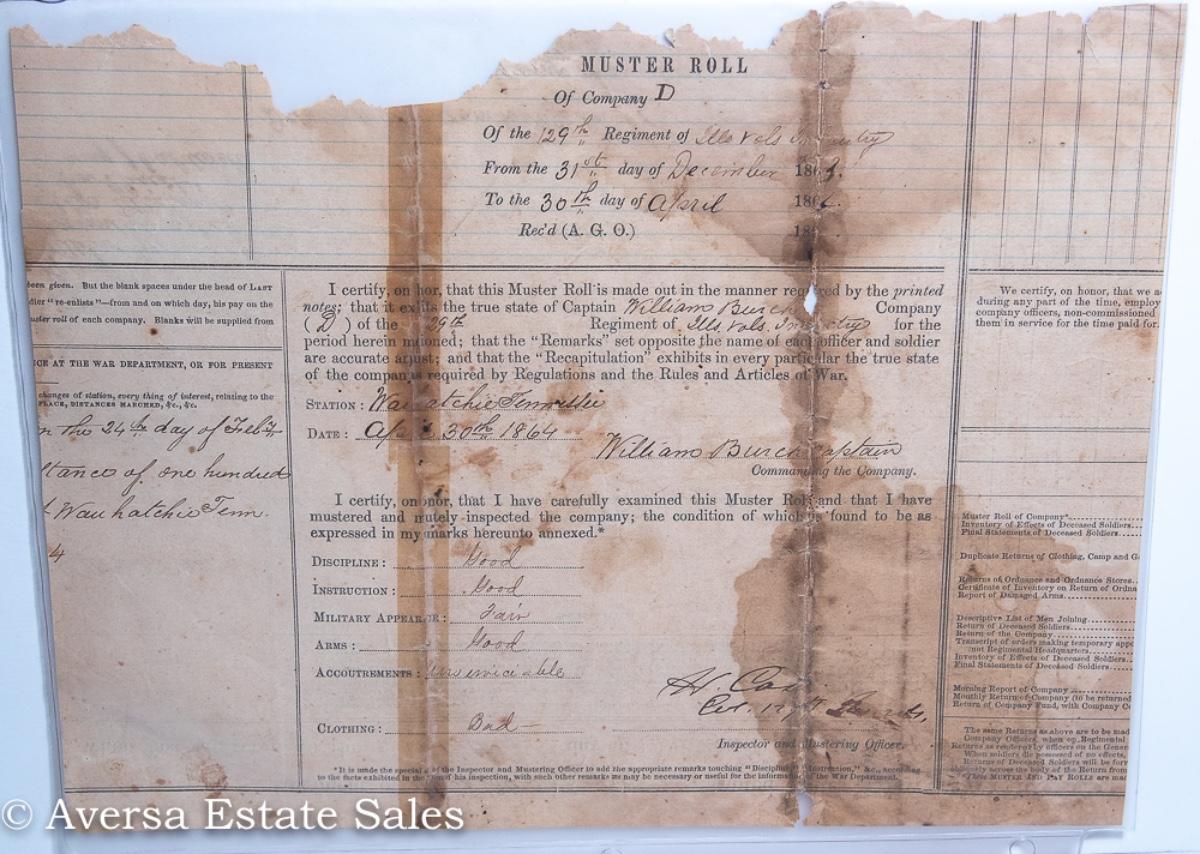 MUSTER ROLL
Of Company D
Of the 129th Regiment of Ills Vols Infantry
From the 31st day of December 186
To the 30th day of April 186
Rec'd (A. G. O.) 18
been given. But the blank spaces under the head of LAST
dier "re-enlists"—from and on which day, his pay on the
uster roll of each company. Blanks will be supplied from
NCE AT THE WAR DEPARTMENT, OR FOR PRESENT
changes of station, every thing of interest, relating to the
PLACE, DISTANCES MARCHED, &c., &c.
n the 24th day of Feby
tance of one hundred
t Wauhatchie Tenn.
4
I certify, on hor, that this Muster Roll is made out in the manner required by the printed
notes; that it ex its the true state of Captain William Burch Company
( D ) of the 29th Regiment of Ills. Vols. Infantry for the
period herein m ioned; that the "Remarks" set opposite the name of each officer and soldier
are accurate a just; and that the "Recapitulation" exhibits in every particular the true state
of the compan s required by Regulations and the Rules and Articles of War.
STATION: Wauhatchie Tennessee
DATE: April 30th 1864
William Burch Captain
Commanding the Company.
I certify, on onor, that I have carefully examined this Muster Roll and that I have
mustered and nutely inspected the company; the condition of which is found to be as
expressed in my marks hereunto annexed.*
DISCIPLINE: Good
INSTRUCTION: Good
MILITARY APPEAR CE: Fair
ARMS: Good
ACCOUTREMENTS: Unserviceable
CLOTHING: Bad
H. Case
Col. 129th
Inspector and Mustering Officer.
*It is made the special of the Inspector and Mustering Officer to add the appropriate remarks touching "Discipline," "Instruction," &c., according
to the facts exhibited in the of his inspection, with such other remarks as may be necessary or useful for the information of the War Department.
We certify, on honor, that we a
during any part of the time, employ
company officers, non-commissioned
them in service for the time paid for.
Muster Roll of Company*
Inventory of Effects of Deceased Soldiers
Final Statements of Deceased Soldiers
Duplicate Returns of Clothing, Camp and G
Returns of Ordnance and Ordnance Stores
Certificate of Inventory on Return of Ordna
Report of Damaged Arms
Descriptive List of Men Joining
Return of Deceased Soldiers
Return of the Company
Transcript of orders making temporary appo
not Regimental Headquarters
Inventory of Effects of Deceased Soldiers
Final Statements of Deceased Soldiers
Morning Report of Company
Monthly Return of Company (to be returned
Return of Company Fund, with Company C
The same Returns as above are to be mad
Company Officers, when on Regimental
Returns as rendered by officers on the Gener
When soldiers die possessed of no effects,
Returns of Deceased Soldiers will be forw
across the body of the Return from
MUSTER AND PAY ROLLS are mad
© Aversa Estate Sales